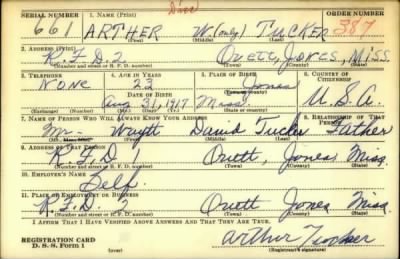 Died
SERIAL NUMBER 1. NAME (Print) ORDER NUMBER
661 ARTHER W (only) TUCKER 387
(First) (Middle) (Last)
2. ADDRESS (Print)
R.F.D. 2 Ovett, Jones, Miss.
(Number and street or R. F. D. number) (Town) (County) (State)
3. TELEPHONE 4. AGE IN YEARS 5. PLACE OF BIRTH 6. COUNTRY OF CITIZENSHIP
None 23 Jones
DATE OF BIRTH (Town or county)
Aug 31, 1917 Miss. U.S.A.
(Exchange) (Number) (Mo.) (Day) (Yr.) (State or country)
7. NAME OF PERSON WHO WILL ALWAYS KNOW YOUR ADDRESS 8. RELATIONSHIP OF THAT PERSON
Mr. David Tucker Father
(Mr., Mrs., Miss) (First) (Middle) (Last)
9. ADDRESS OF THAT PERSON
R.F.D. Ovett, Jones Miss.
(Number and street or R. F. D. number) (Town) (County) (State)
10. EMPLOYER'S NAME
Self
11. PLACE OF EMPLOYMENT OR BUSINESS
R.F.D. 2 Ovett Jones Miss.
(Number and street or R. F. D. number) (Town) (County) (State)
I AFFIRM THAT I HAVE VERIFIED ABOVE ANSWERS AND THAT THEY ARE TRUE.
REGISTRATION CARD
D. S. S. FORM 1 (over) Arthur Tucker
(Registrant's signature)